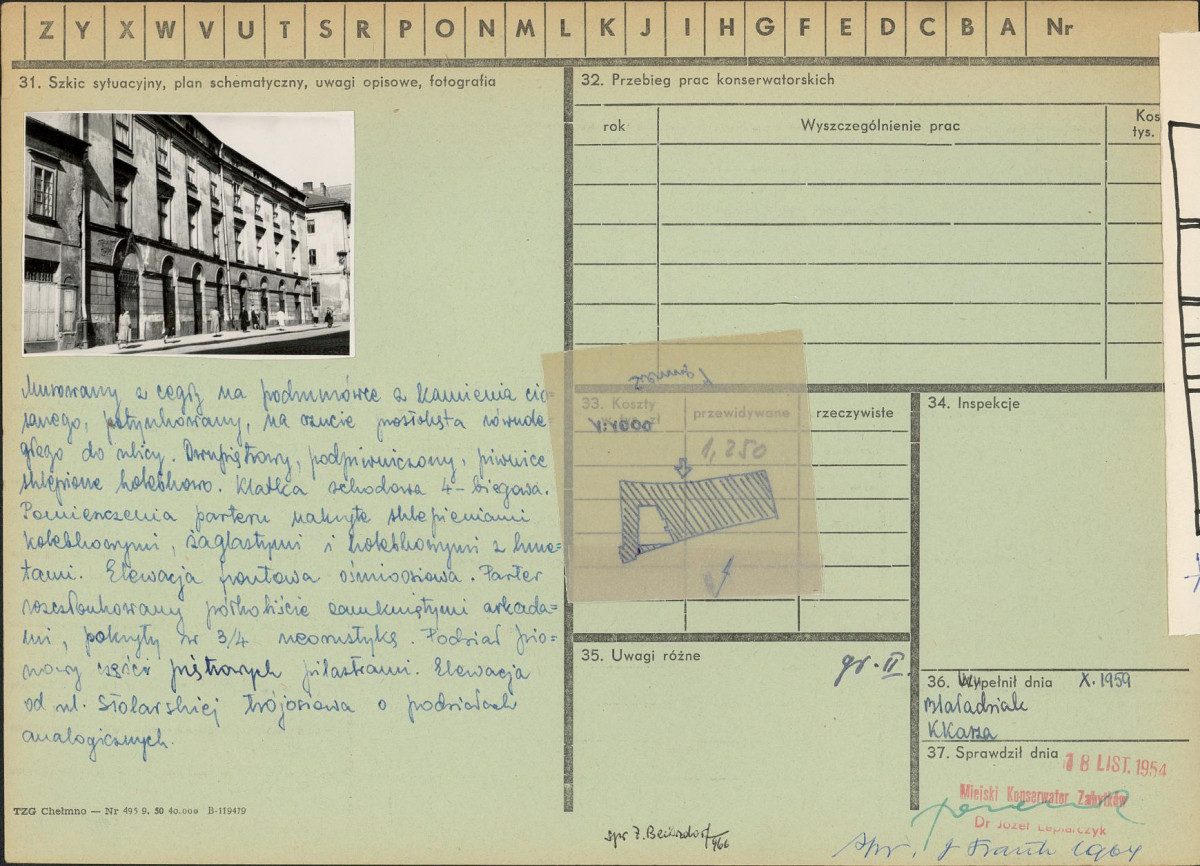 Z Y X W V U T S R P O N M L K J I H G F E D C B A Nr
31. Szkic sytuacyjny, plan schematyczny, uwagi opisowe, fotografia
Murowany z cegły na podmurówce z kamienia cio-
sanego, potynkowany, na rzucie prostokąta równole-
głego do ulicy. Dwupiętrowy, podpiwniczony, piwnice
sklepione kolebkowo. Klatka schodowa 4-biegowa.
Pomieszczenia parteru nakryte sklepieniami
kolebkowymi, żaglastymi i kolebkowymi z lune=
tami. Elewacja frontowa ośmioosiowa. Parter
rozczłonkowany półkoliście zamkniętymi arkada=
mi, pokryty w 3/4 neorustyką. Podział pio=
nowy części piętrowych pilastrami. Elewacja
od ul. Stolarskiej trójosiowa o podziałach
analogicznych.
TZG Chełmno — Nr 495 9. 50 40.000 B-119419
32. Przebieg prac konserwatorskich
rok Wyszczególnienie prac Kos
tys.
33. Koszty
przewidywane rzeczywiste
1,250
34. Inspekcje
35. Uwagi różne
gr. II.
36. Wypełnił dnia X. 1959
KKarza
37. Sprawdził dnia
18 LIST. 1954
Miejski Konserwator Zabytków
Dr Józef Lepiarczyk
spr. J. Frazik 1964